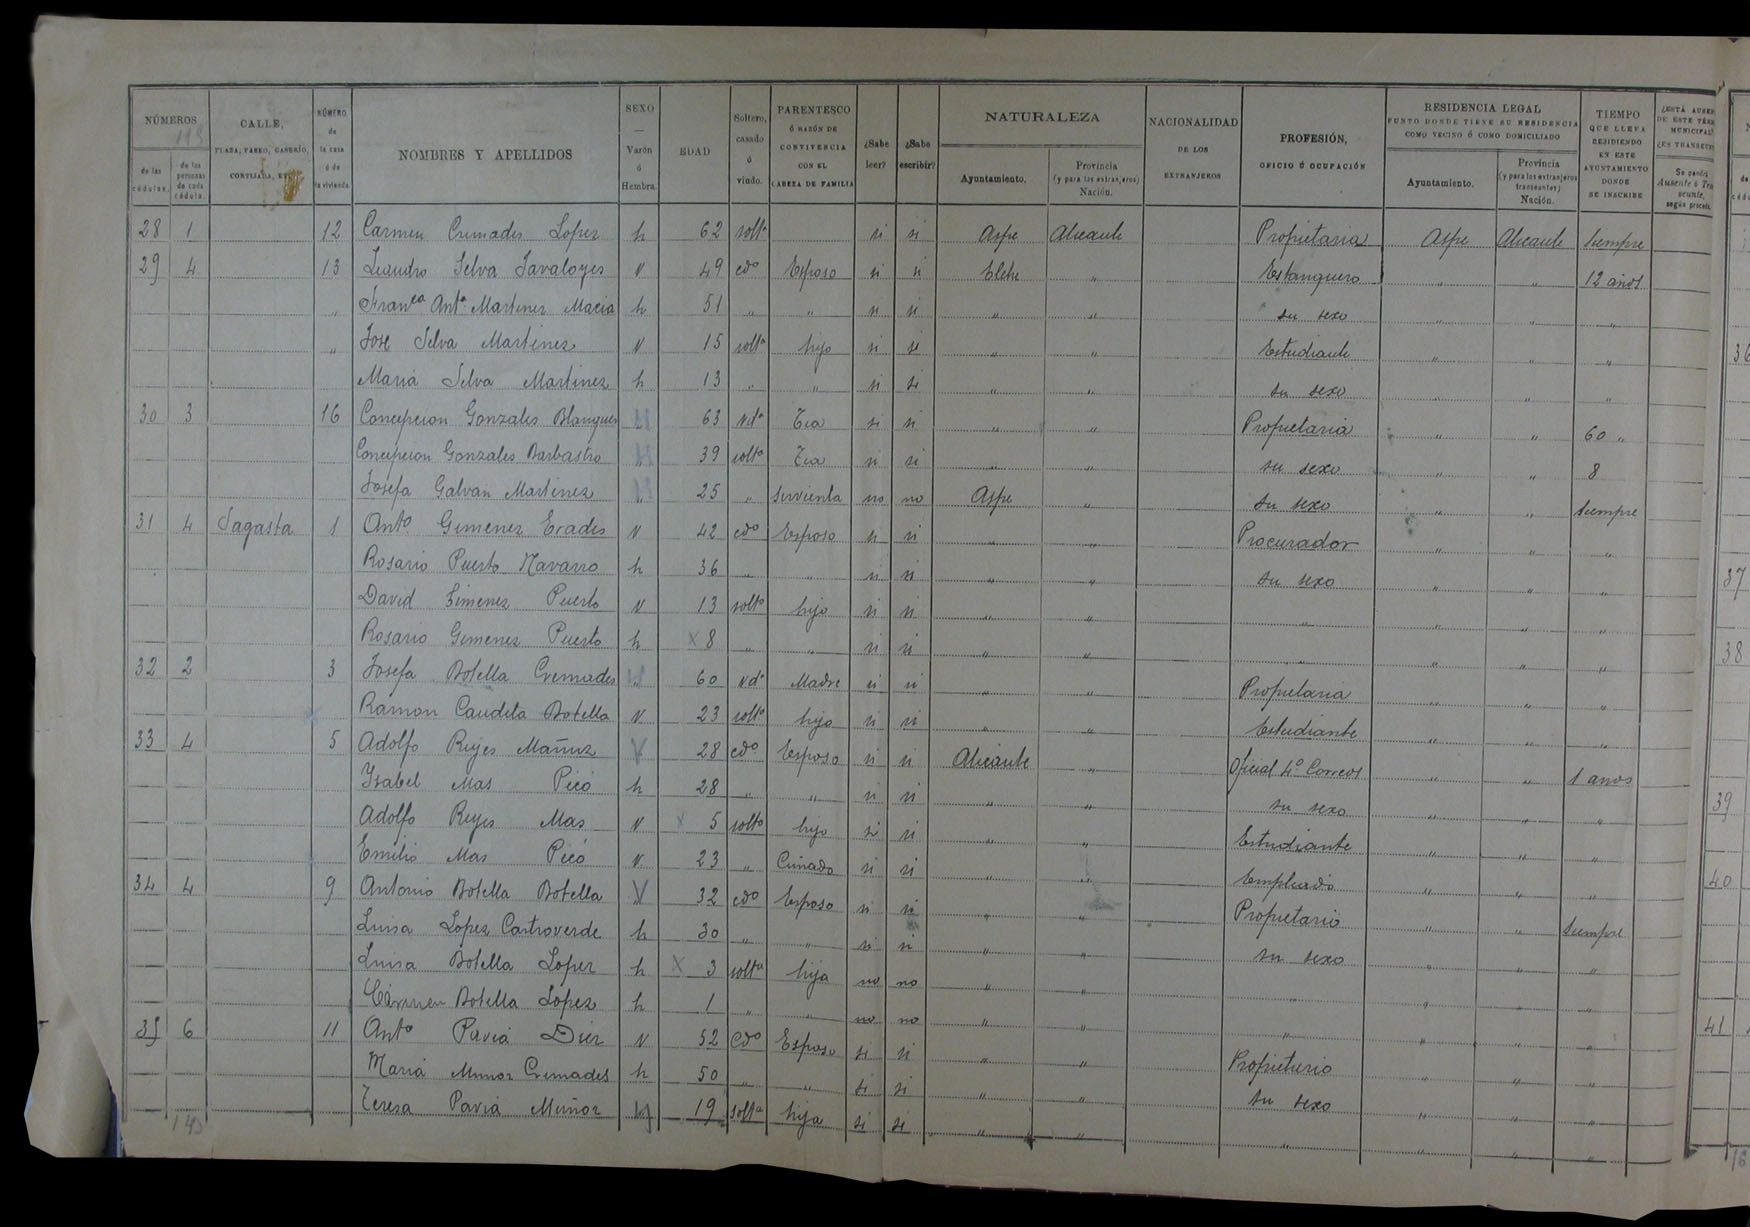 NÚMEROS CALLE, PLAZA, PASEO, CASERÍO, CORTIJADA, ETC. NÚMERO de la casa ó de la vivienda NOMBRES Y APELLIDOS SEXO — Varón ó Hembra. EDAD Soltero, casado ó viudo. PARENTESCO Ó RAZÓN DE CONVIVENCIA CON EL CABEZA DE FAMILIA ¿Sabe leer? ¿Sabe escribir? NATURALEZA NACIONALIDAD DE LOS EXTRANJEROS PROFESIÓN, OFICIO Ó OCUPACIÓN RESIDENCIA LEGAL PUNTO DONDE TIENE SU RESIDENCIA COMO VECINO Ó COMO DOMICILIADO TIEMPO QUE LLEVA RESIDIENDO EN ESTE AYUNTAMIENTO DONDE SE INSCRIBE
de las cédulas. de las personas de cada cédula. Ayuntamiento. Provincia (y para los extranjeros) Nación. Ayuntamiento. Provincia (y para los extranjeros transeuntes) Nación.
28 1 12 Carmen Cremades Lopez h 62 solta si si Aspe Alicante Propietaria Aspe Alicante Siempre
29 4 13 Leandro Selva Savaloyes v 49 cdo Esposo si si Elche " Estanquero " " 12 años
" Franca Anta Martinez Macia h 51 " " si si " " su sexo " " "
" Jose Selva Martinez v 15 solto hijo si si " " Estudiante " " "
Maria Selva Martinez h 13 " " si si " " su sexo " " "
30 3 16 Concepcion Gonzales Blanquer H 63 vda Tia si si " " Propietaria " " 60 "
Concepcion Gonzales Barbastro H 39 solta Tia si si " " su sexo " " 8
Josefa Galvan Martinez H 25 " sirvienta no no Aspe " su sexo " " Siempre
31 4 Sagasta 1 Anto Gimenez Erades v 42 cdo Esposo si si " " Procurador " " "
Rosario Puerto Navarro h 36 " " si si " " su sexo " " "
David Gimenez Puerto v 13 solto hijo si si " " " " " "
Rosario Gimenez Puerto h x 8 " " si si " " " " " "
32 2 3 Josefa Botella Cremades H 60 vda Madre si si " " Propietaria " " "
Ramon Caudela Botella v 23 solto hijo si si " " Estudiante " " "
33 4 5 Adolfo Reyes Mañuz V 28 cdo Esposo si si Alicante " Oficial 4º Correos " " 1 años
Ysabel Mas Picó h 28 " " si si " " su sexo " " "
Adolfo Reyes Mas v x 5 solto hijo si si " " Estudiante " " "
Emilio Mas Picó v 23 " Cuñado si si " " Empleado " " "
34 4 9 Antonio Botella Botella V 32 cdo Esposo si si " " Propietario " " Siempre
Luisa Lopez Castroverde h 30 " " si si " " su sexo " " "
Luisa Botella Lopez h x 3 solta hija no no " " " " " "
Cármen Botella Lopez h 1 " " no no " " " " " "
35 6 11 Anto Paviá Diez v 52 Cdo Esposo si si " " Propietario " " "
Maria Muñoz Cremades h 50 " " si si " " su sexo " " "
Teresa Paviá Muñoz H 19 solta hija si si " " " " " "